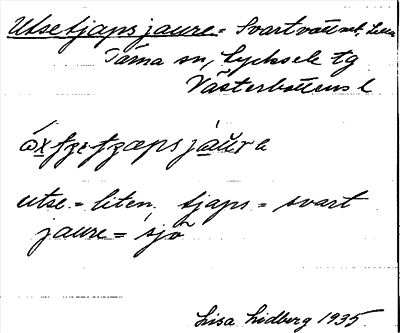 Utsetjapsjaure = Svartvattnet,
Tärna sn, Lycksele tg
Västerbottens l
utse = liten. tjaps = svart
jaure = sjö
Lisa Lidberg 1935.